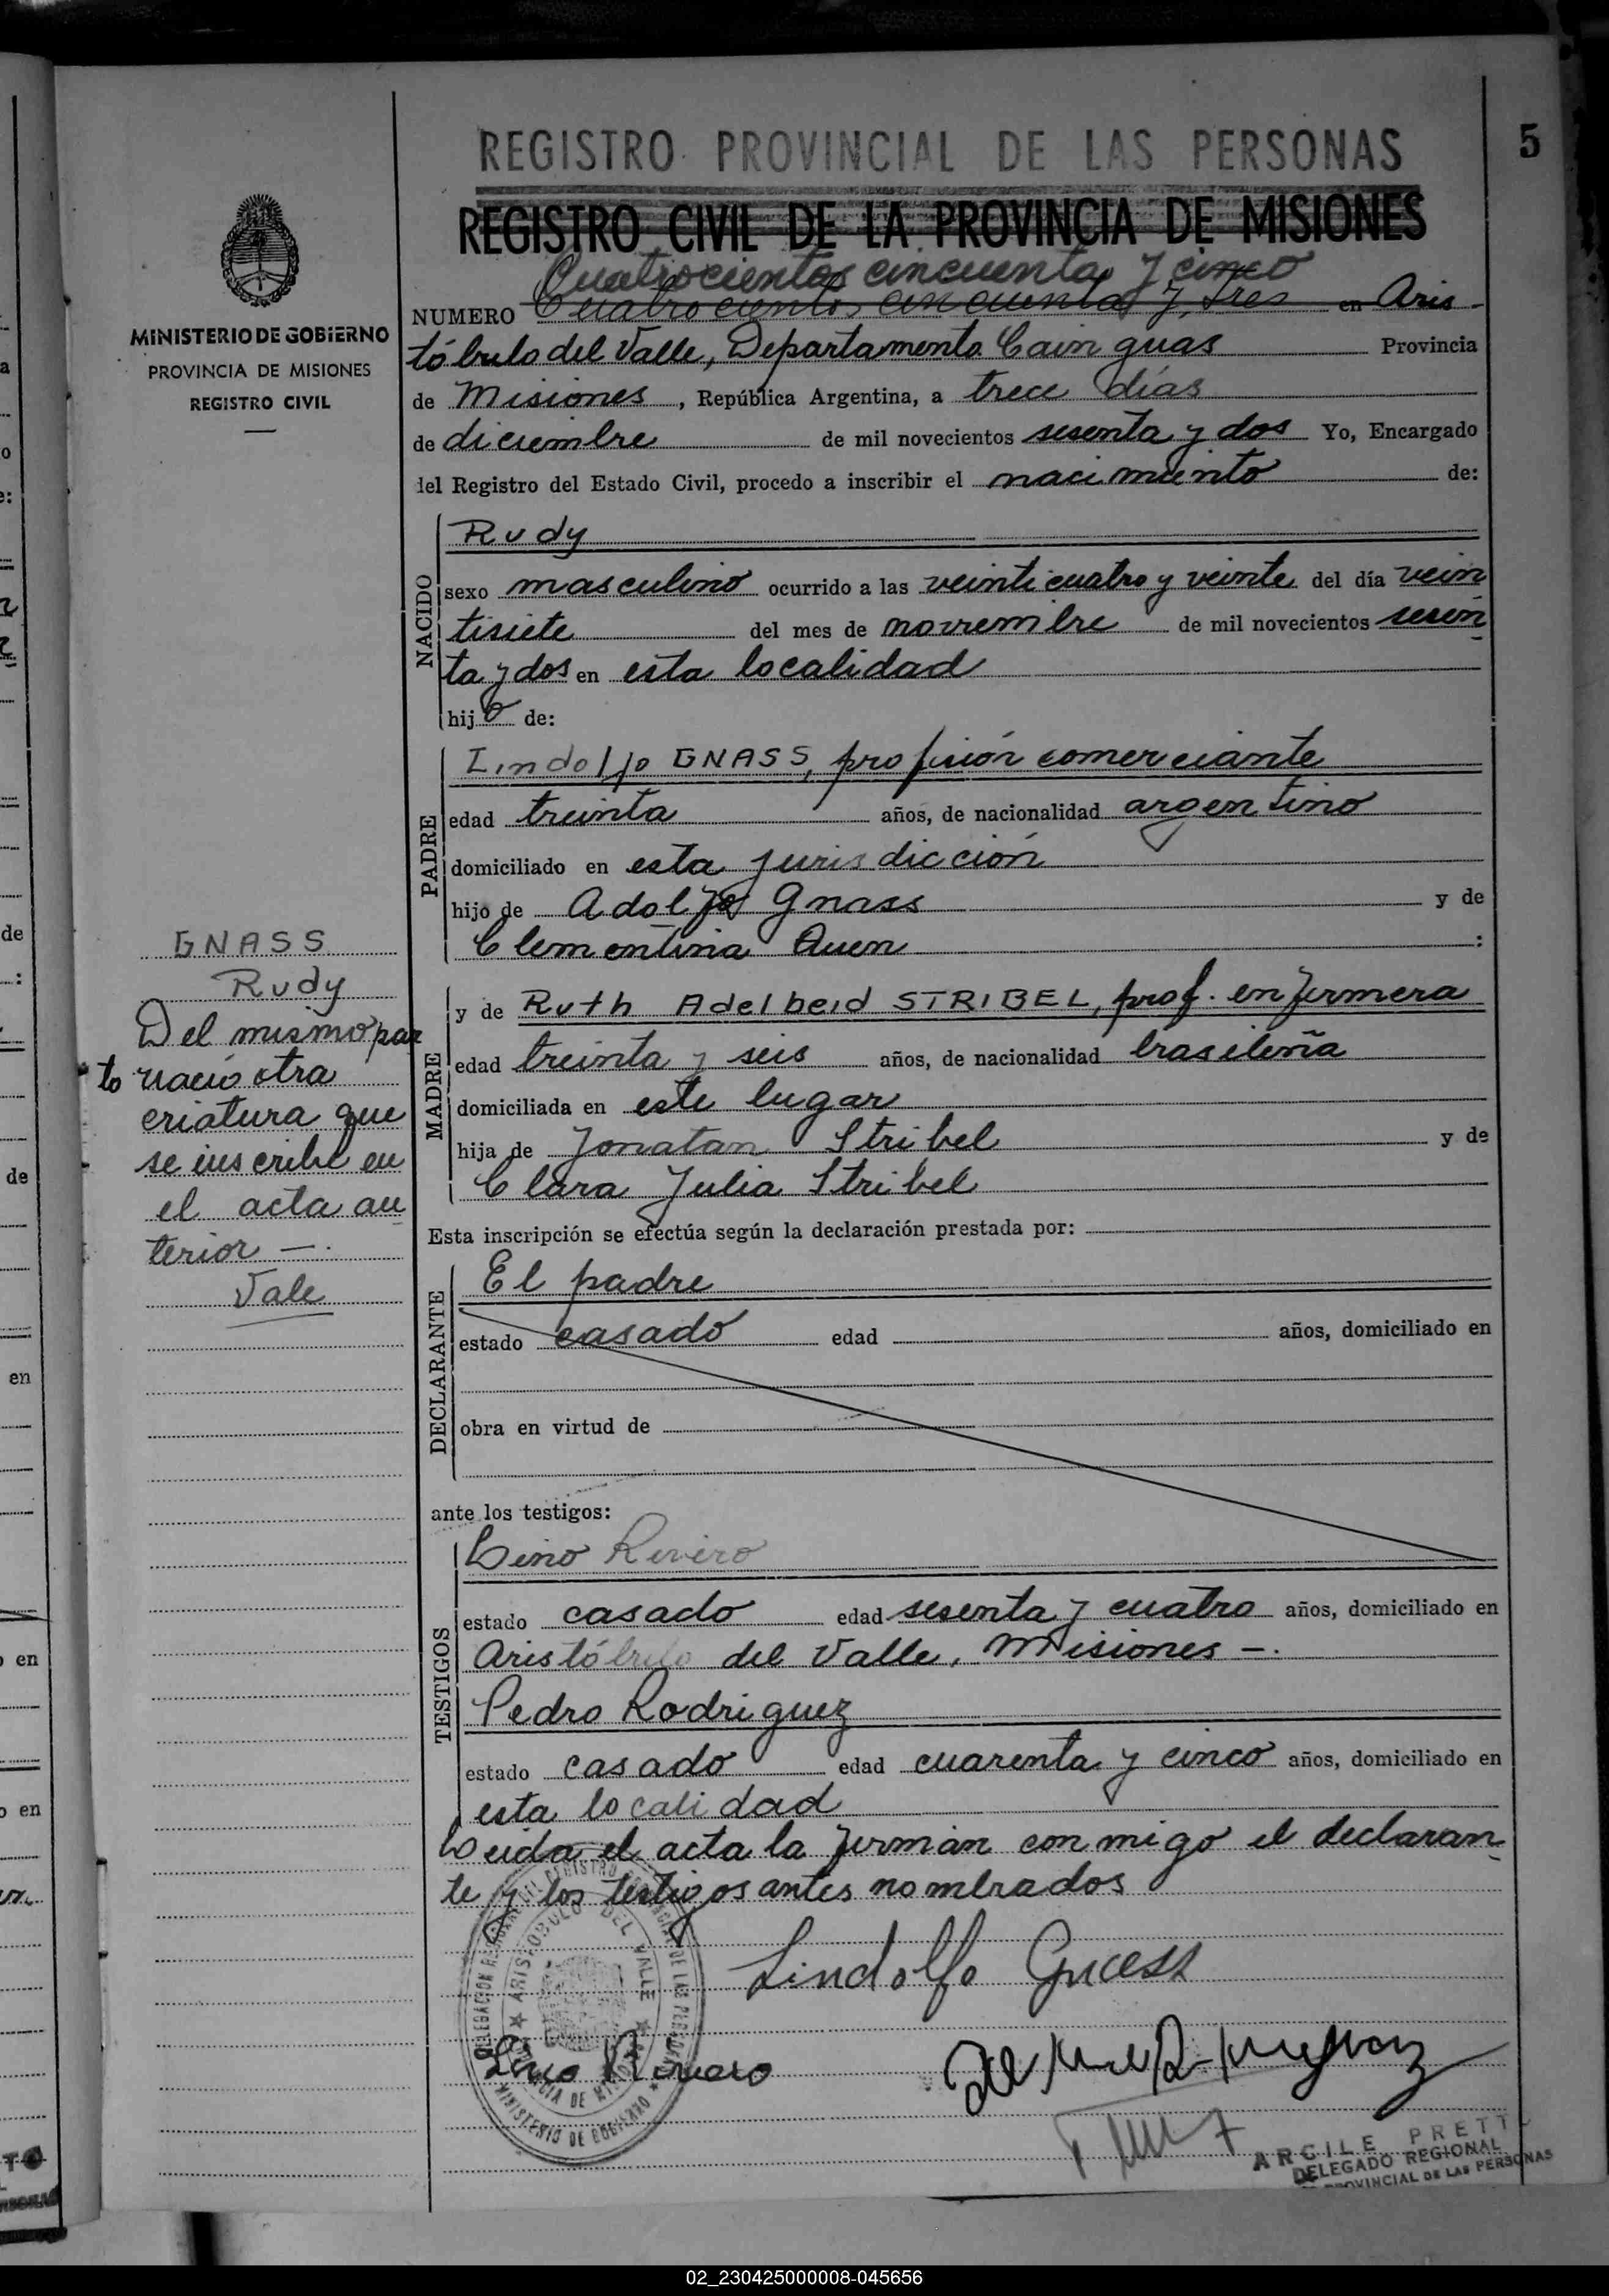 5
REGISTRO PROVINCIAL DE LAS PERSONAS
REGISTRO CIVIL DE LA PROVINCIA DE MISIONES
MINISTERIO DE GOBIERNO
PROVINCIA DE MISIONES
REGISTRO CIVIL
Cuatrocientos cincuenta y cinco
NUMERO Cuatrocientos cincuenta y tres en Aris
tóbulo del Valle, Departamento Cain guas Provincia
de Misiones, República Argentina, a trece días
de diciembre de mil novecientos sesenta y dos Yo, Encargado
del Registro del Estado Civil, procedo a inscribir el nacimiento de:
NACIDO
Rudy
sexo masculino ocurrido a las veinticuatro y veinte del día vein
tisiete del mes de noviembre de mil novecientos sesen
ta y dos en esta localidad
hijo de:
PADRE
Lindolfo GNASS, profisión comerciante
edad treinta años, de nacionalidad argentino
domiciliado en esta jurisdicción
hijo de Adolfo Gnass y de
Clementina Auen :
GNASS
Rudy
Del mismo par
to nació otra
criatura que
se inscribe en
el acta an
terior —.
Vale
MADRE
y de Ruth Adelheid STRIBEL, prof. enfermera
edad treinta y seis años, de nacionalidad brasileña
domiciliada en este lugar
hija de Jonatan Stribel y de
Clara Julia Stribel
Esta inscripción se efectúa según la declaración prestada por:
DECLARANTE
El padre
estado casado edad años, domiciliado en
obra en virtud de
ante los testigos:
TESTIGOS
Lino Rivero
estado casado edad sesenta y cuatro años, domiciliado en
Aristóbulo del Valle, Misiones —.
Pedro Rodriguez
estado casado edad cuarenta y cinco años, domiciliado en
esta localidad
Leida el acta la firman conmigo el declaran
te y los testigos antes nombrados
DELEGACION REGISTRO PROVINCIAL DE LAS PERSONAS
ARISTOBULO DEL VALLE
PROVINCIA DE MISIONES
MINISTERIO DE GOBIERNO
Lindolfo Gnass
Lino Rivero
ARCILE PRETT
DELEGADO REGIONAL
PROVINCIAL DE LAS PERSONAS
02_230425000008-045656